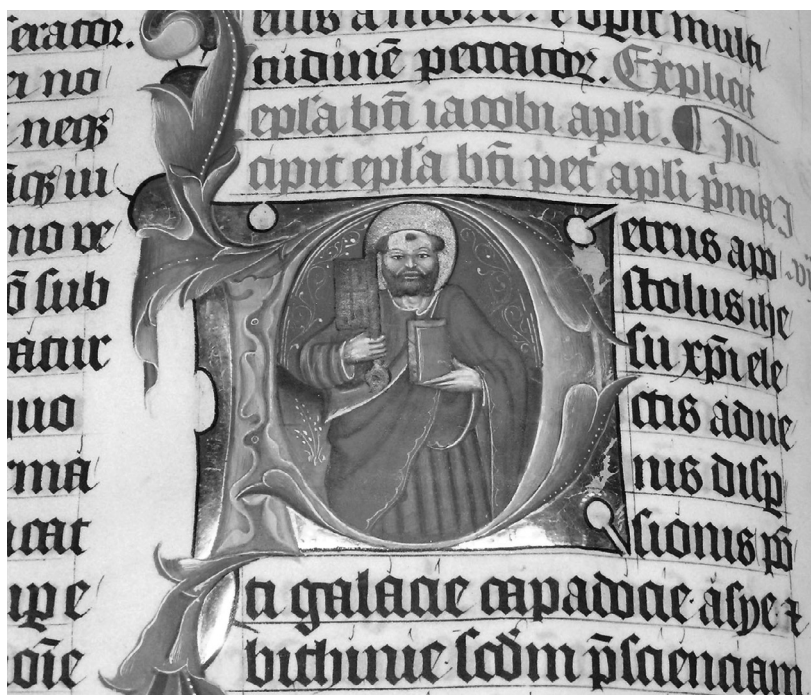 serator.
ei no
neqꝫ
iqꝫ iu
no ve
õ sub
catur
quo
rma
ncat
oīe
eius a morte. ⁊ opit multi
tudinē peccatoꝝ. Explicit
epl'a bt̄i iacobi apli. ¶ In
cipit epl'a bt̄i pet' apli p̄ma
Petrus apo
stolus ihe
su xp̄i ele
ctis adue
nis disp̄
sionis pō
ti galacie capadocie asye ⁊
bithinie scd̄m p̄scienciam